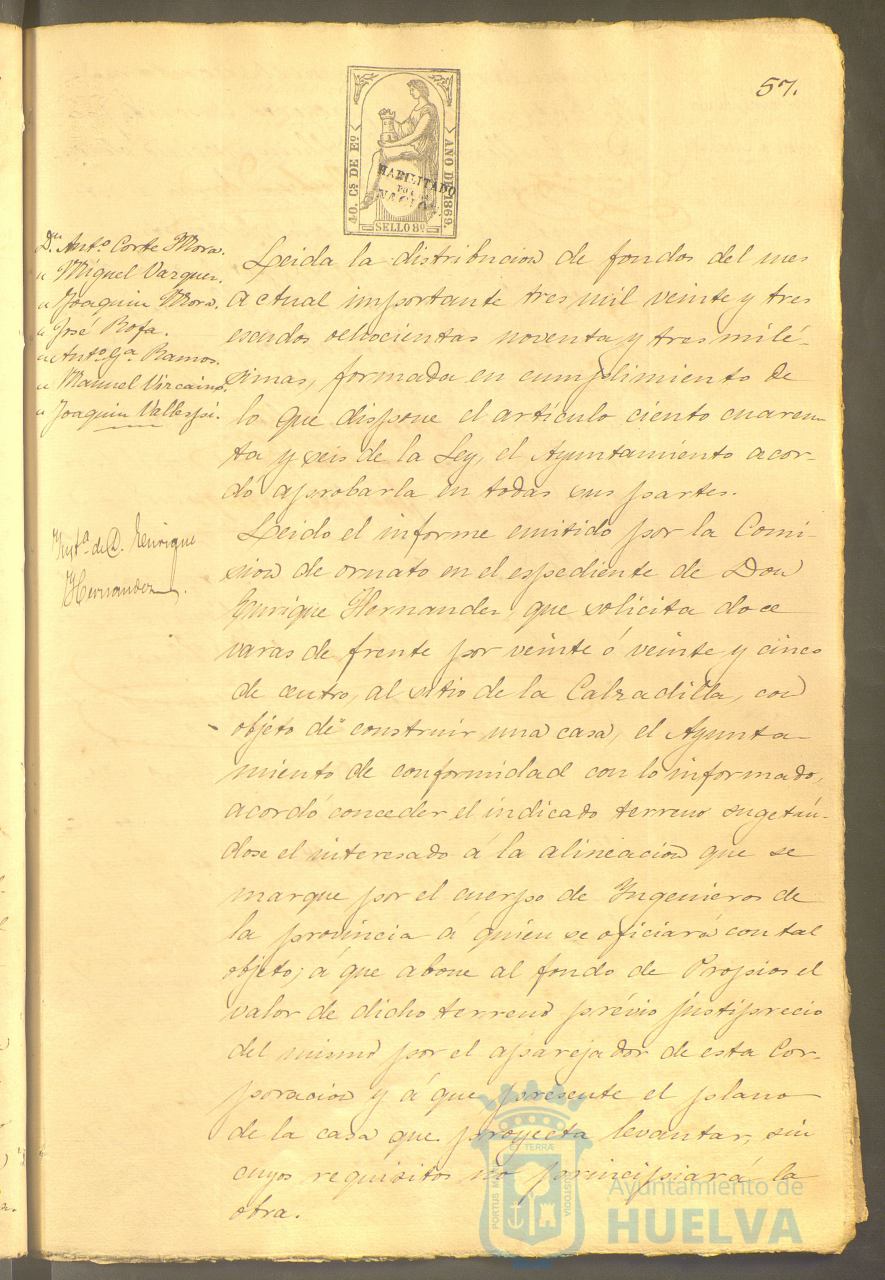 57.
40. Cs DE Eo.
AÑO DE 1869.
HABILITADO
POR LA
NACION
SELLO 8º
Dn. Antº Corte Mora.
" Miguel Vazquez.
" Joaquin Mora.
" José Rofa.
" Antº Gª Ramos.
" Manuel Vizcaino.
" Joaquin Vallespi.
Leida la distribucion de fondos del mes
actual importante tres mil veinte y tres
escudos ochocientas noventa y tres milé-
simas, formada en cumplimiento de
lo que dispone el artículo ciento cuaren-
ta y seis de la Ley, el Ayuntamiento acor-
dó aprobarla en todas sus partes.
Instª de D. Henrique
Hernandez.
Leido el informe emitido por la Comi-
sion de ornato en el espediente de Don
Enrique Hernandez, que solicita doce
varas de frente por veinte ó veinte y cinco
de centro, al sitio de la Calzadilla, con
objeto de construir una casa, el Ayunta-
miento de conformidad con lo informado,
acordó conceder el indicado terreno sugetán-
dose el interesado á la alineacion que se
marque por el cuerpo de Ingenieros de
la provincia á quien se oficiará con tal
objeto; á que abone al fondo de Propios el
valor de dicho terreno prévio justiprecio
del mismo por el aparejador de esta Cor-
poracion y á que presente el plano
de la casa que proyecta levantar, sin
cuyos requisitos no principiará la
obra.
PORTUS M
TERRÆ
CUSTODIA
Ayuntamiento de
HUELVA